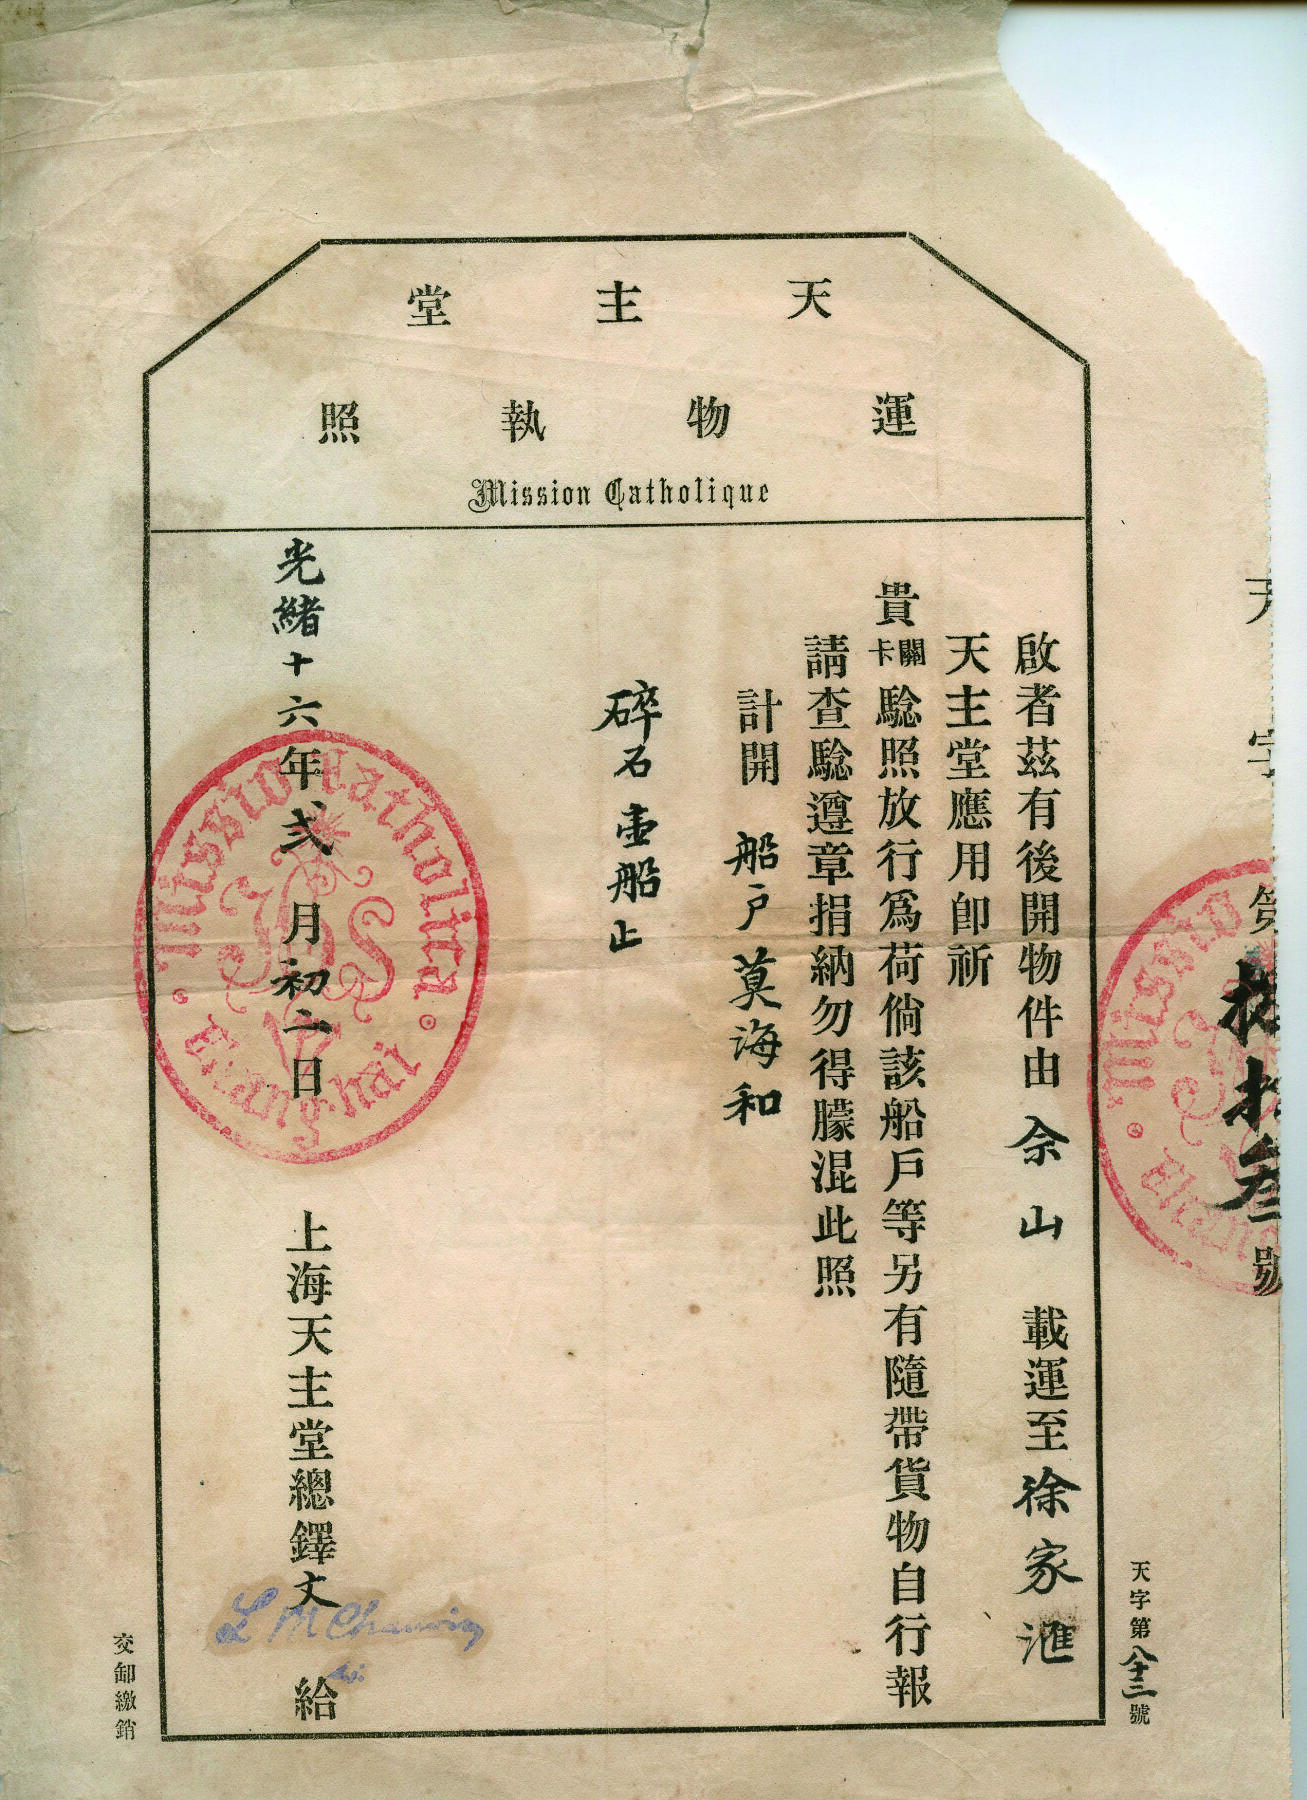 天主堂
運物執照
Mission Catholique
天字第捌拾叁號
天字第八十三號
啟者茲有後開物件由佘山載運至徐家滙
天主堂應用卽祈
貴關卡騐照放行爲荷倘該船戶等另有隨帶貨物自行報
請查騐遵章捐納勿得朦混此照
計開 船戶莫海和
碎石壹船止
光緒十六年弍月初二日
上海天主堂總鐸文給
Missio Catholica
Shanghai
交卸繳銷